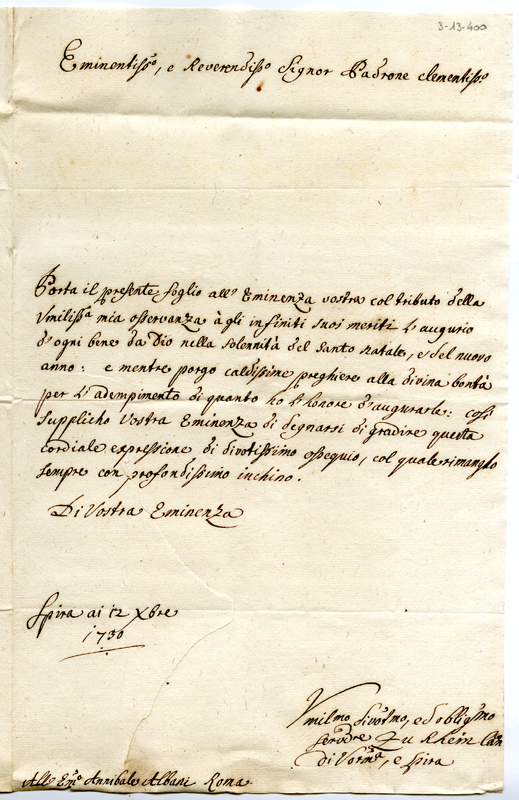 3-13-400
Eminentiss.o, e Reverendiss.o Signor Padrone clementiss.o
Porta il presente foglio all' Eminenza vostra col tributo della
Vmiliss.a mia osservanza à gli infiniti suoi meriti l'augurio
d'ogni bene da Dio nella solennità del Santo natale, e del nuovo
anno: e mentre porgo caldissime preghiere alla divina bontà
per l'adempimento di quanto ho l'honore d'augurarle: così
supplicho Vostra Eminenza di degnarsi di gradire questa
cordiale expressione di divotissimo ossequio, col quale rimango
sempre con profondissimo inchino.
Di Vostra Eminenza
Spira ai 12 Xbre
1730
Vmilmo divotmo, ed obligmo
servdre Zu Rhein Can
di Vorm.a, e Spira
All' Em.o Annibale Albani Roma.